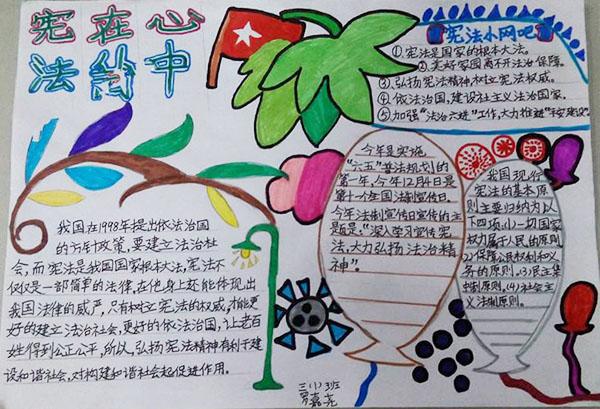 宪在心
法的中
宪法小网吧
①、宪法是国家的根本大法。
②、美好家园离不开法治保障。
③、弘扬宪法精神树立宪法权威。
④、依法治国,建设社主义法治国家。
⑤、加强“法治六进”工作,大力推进“平安建设”。
我国在1998年提出依法治国
的方针政策,要建立法治社
会,而宪法是我国国家根本大法,宪法不
仅仅是一部简单的法律,在他身上还能体现出
我国法律的威严,只有树立宪法的权威,才能更
好的建立法治会社,更好的依法治国,让老百
姓得到公正公平,所以,弘扬宪法精神有利于建
设和谐社会,对构建和谐社会起促进作用。
今年是实施
“六五”普法规划的
第一年,今年12月4日是
第十六个国法制宣传日,
今年法制宣传日宣传的主
题是:“深入学习宣传宪
法,大力弘扬法治精
神”。
我国现行
宪法的基本原
则主要归纳为以
下四项:(1)一切国家
权力属于人民的原则
(2)保障公民权利和义
务的原则,(3)民主集
中制原则,(4)社会主
义法制原则。
三(1)班
罗嘉尧